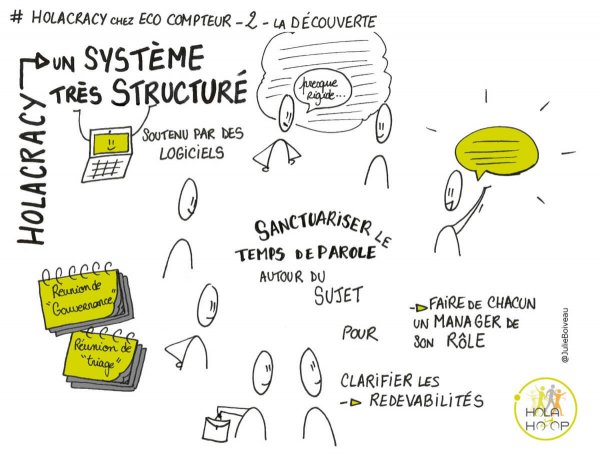 # HOLACRACY CHEZ ECO COMPTEUR - 2 - LA DÉCOUVERTE
HOLACRACY
UN SYSTÈME
TRÈS STRUCTURÉ
SOUTENU PAR DES
LOGICIELS
presque
rigide...
SANCTUARISER LE
TEMPS DE PAROLE
AUTOUR DU
SUJET
POUR
FAIRE DE CHACUN
UN MANAGER DE
SON RÔLE
CLARIFIER LES
REDEVABILITÉS
Réunion de
"Gouvernance"
Réunion de
"triage"
@JulieBoiveau
HOLA
HOOP